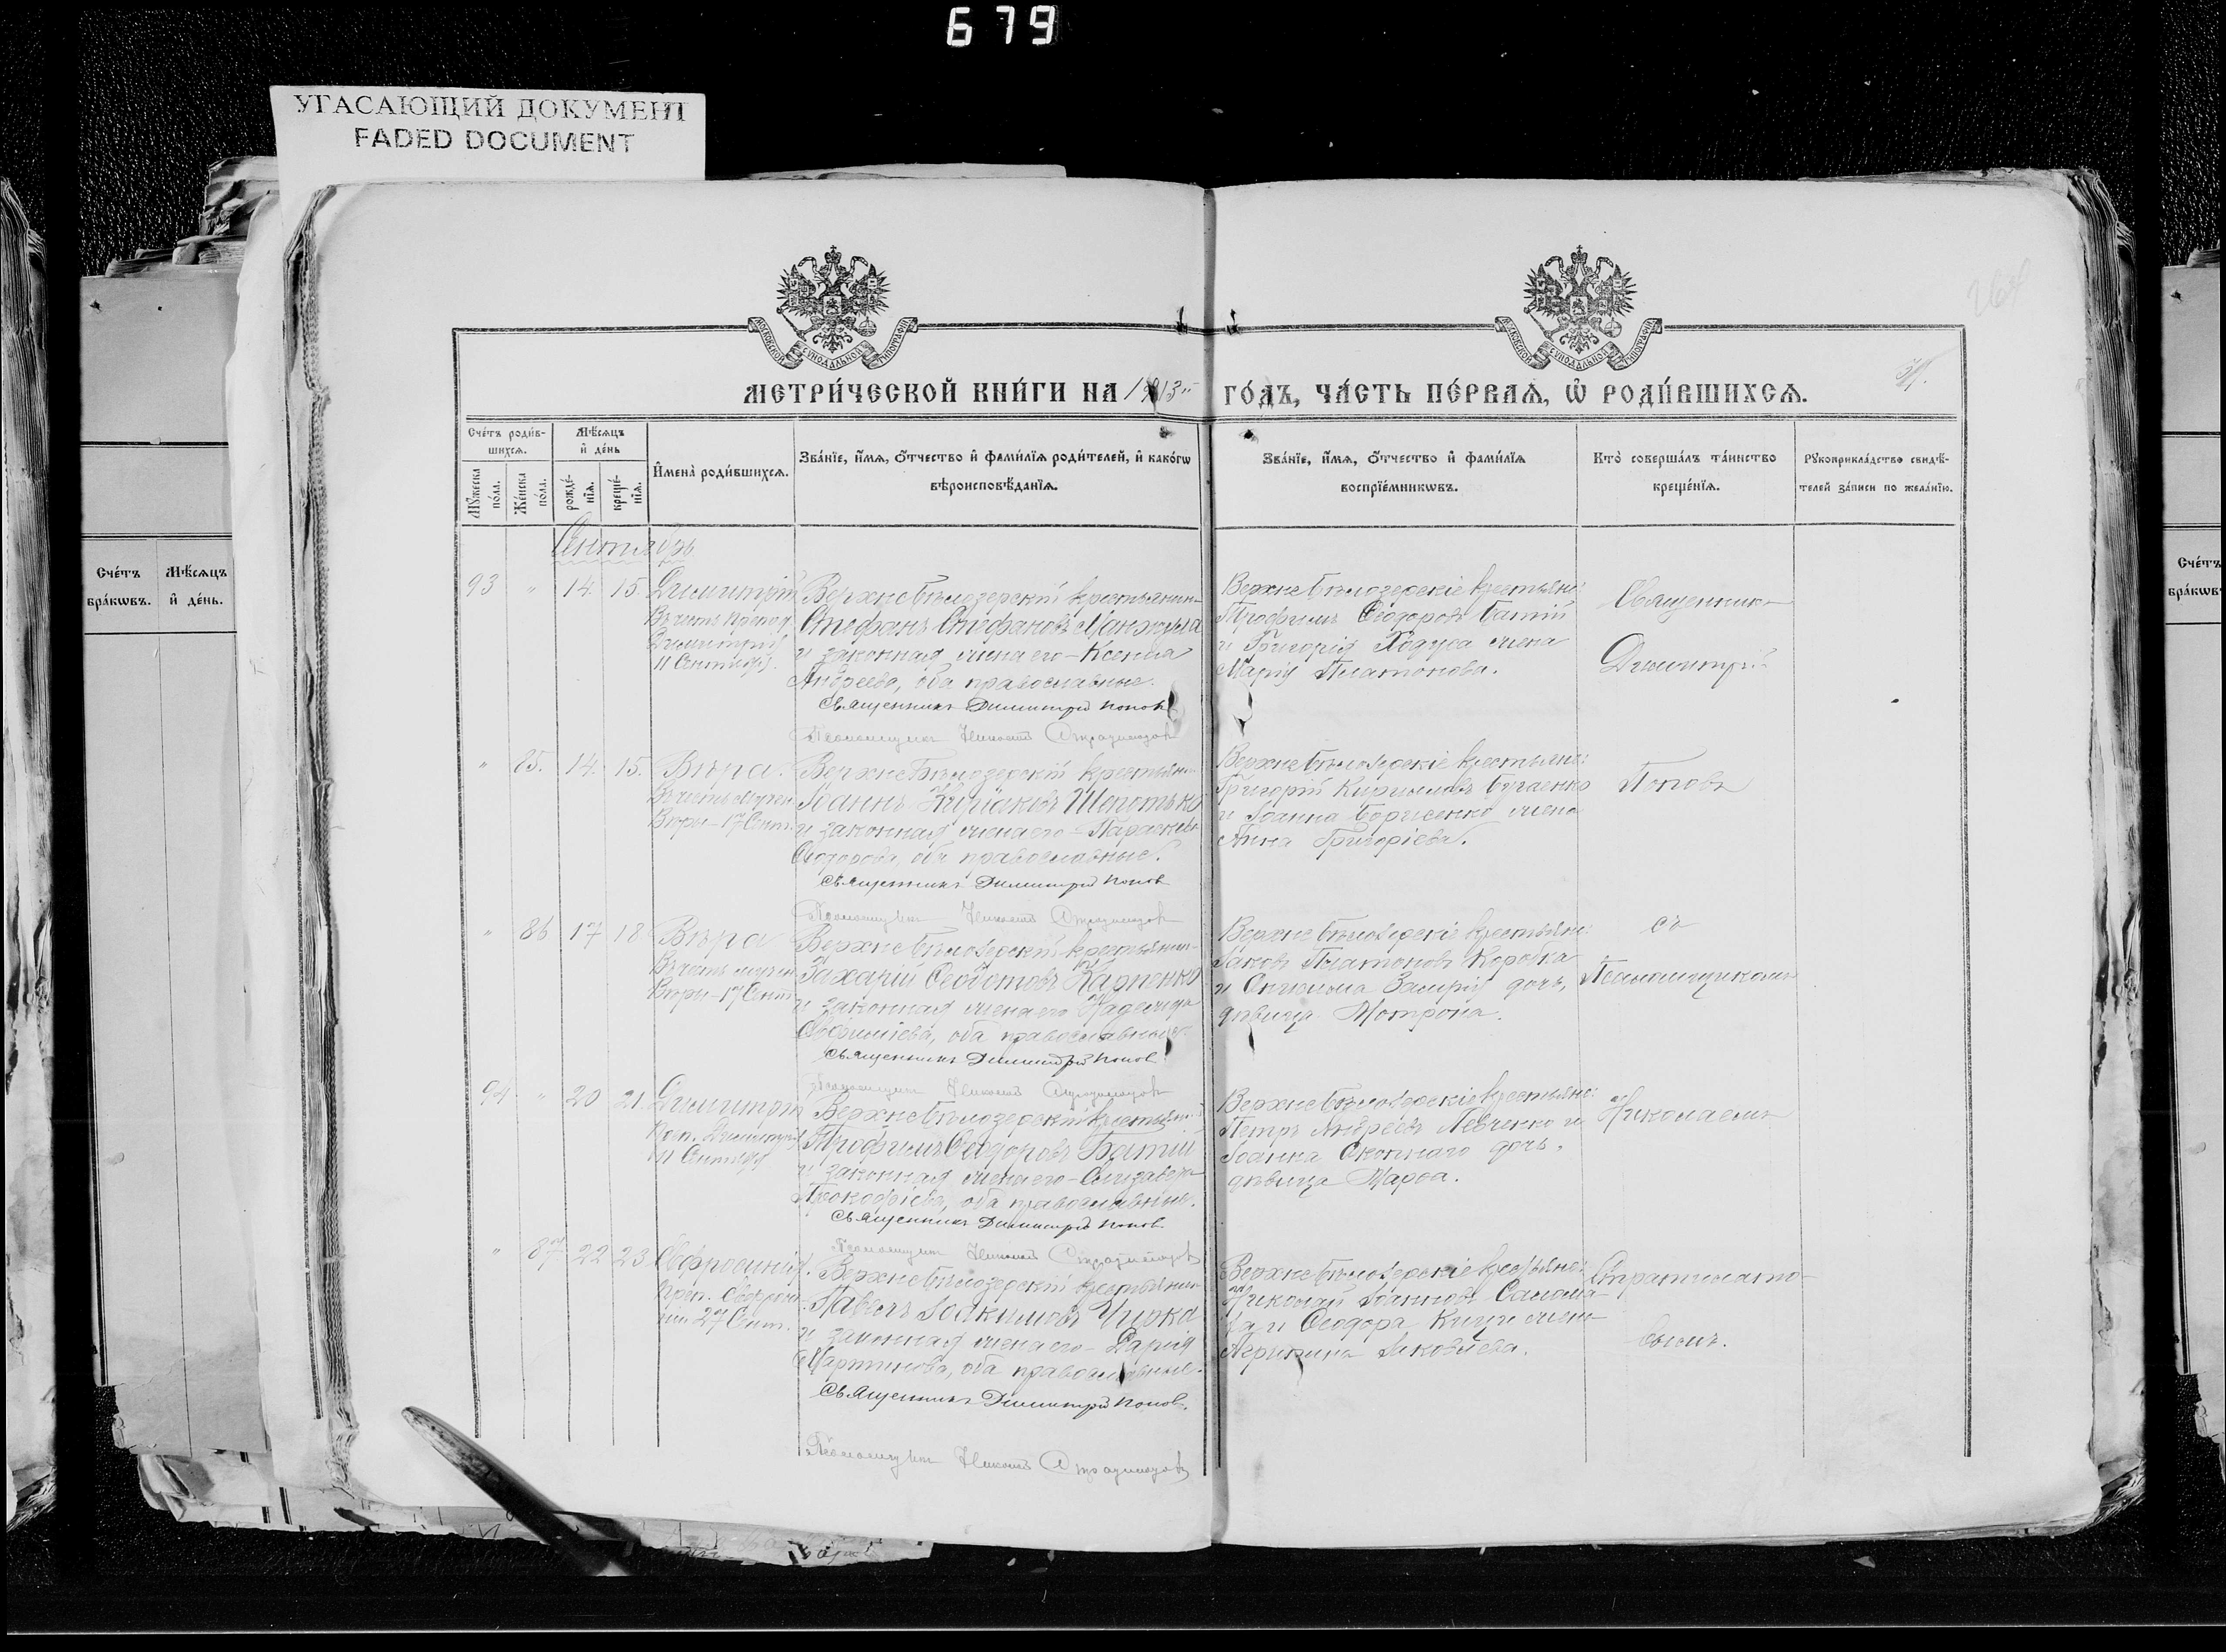 679
УГАСАЮЩИЙ ДОКУМЕНТ
FADED DOCUMENT
МОСКОВСКОЙ СѴНОДАЛЬНОЙ ТИПОГРАФІИ
МОСКОВСКОЙ СѴНОДАЛЬНОЙ ТИПОГРАФІИ
МЕТРИ́ЧЕСКОЙ КНИ́ГИ НА 1913 ГО́ДЪ, ЧА́СТЬ ПЕ́РВАѦ, Ѽ РОДИ́ВШИХСѦ.
Сче́тъ роди́в-
шихсѧ.
Мѣ́сѧцъ
и҆ де́нь
Мꙋ́жеска по́ла.
Же́нска по́ла.
рожде́-
нїѧ.
креще́-
нїѧ.
И҆мена̀ роди́вшихсѧ.
Зва́нїе, и҆́мѧ, ѻ҆́тчество и҆ фами́лїѧ роди́телей, и҆ како́гѡ
вѣроисповѣ́данїѧ.
Зва́нїе, и҆́мѧ, ѻ҆́тчество и҆ фами́лїѧ
воспрїе́мникѡвъ.
Кто̀ соверша́лъ та́инство
креще́нїѧ.
Рꙋкоприкла́дство свидѣ́-
телей за́писи по жела́нїю.
Сентябрь
93 " 14 15 Димитрій
Въ честь препод.
Димитрія
11 Сентября.
Верхнебѣлозерскій крестьянинъ
Стефанъ Стефановъ Манжула
и законная жена его - Ксенія
Андреева, оба православные.
Священникъ Димитрій Попов
Псаломщикъ Николай Стратилатов
Верхнебѣлозерскіе крестьяне:
Трофимъ Ѳеодоровъ Батій
и Григорія Ходуса жена
Марія Платонова.
Священникъ
Димитрій
" 85. 14. 15. Вѣра.
Въ честь мучен.
Вѣры - 17 Сент.
Верхнебѣлозерскій крестьянинъ
Іоаннъ Шепотько
и законная жена его - Параскева
Ѳеодорова, оба православные.
Священникъ Димитрій Попов
Псаломщикъ Николай Стратилатов
Верхнебѣлозерскіе крестьяне:
Григорій Кирилловъ Бугаенко
и Іоанна Борисенко жена
Анна Григоріева.
Поповъ
" 86 17 18 Вѣра
Въ честь мучен.
Вѣры - 17 Сент.
Верхнебѣлозерскій крестьянинъ
Захарій Ѳеодотовъ Карпенко
и законная жена его Надежда
Евфиміева, оба православные.
Священникъ Димитрій Попов
Псаломщикъ Николай Стратилатов
Верхнебѣлозерскіе крестьяне:
Іаковъ Платоновъ Коробка
и дочь,
дѣвица Мотрона.
съ
Псаломщикомъ
94 " 20 21 Димитрій
преп. Димитрія
11 Сентября
Верхнебѣлозерскій крестьянинъ
Трофимъ Ѳеодоровъ Батій
и законная жена его - Елизавета
Прокофіева, оба православные.
Священникъ Димитрій Попов
Псаломщикъ Николай Стратилатов
Верхнебѣлозерскіе крестьяне:
Петръ Андреевъ Левченко и
Іоанна дочь,
дѣвица Марѳа.
Николаемъ
" 87 22 23 Евфросинія.
преп. Евфроси-
ніи 27 Сент.
Верхнебѣлозерскій крестьянинъ
Павелъ Іоакимовъ Чирка
и законная жена его - Дарія
Мартинова, оба православные.
Священникъ Димитрій Попов.
Псаломщикъ Николай Стратилатов
Верхнебѣлозерскіе крестьяне:
Николай Іоанновъ
и Ѳеодора жена
Агрипина Іаковлева.
Стратилато-
вымъ.
Сче́тъ
бра́кѡвъ.
Мѣ́сѧцъ
и҆ де́нь.
Сче́тъ
бра́кѡвъ